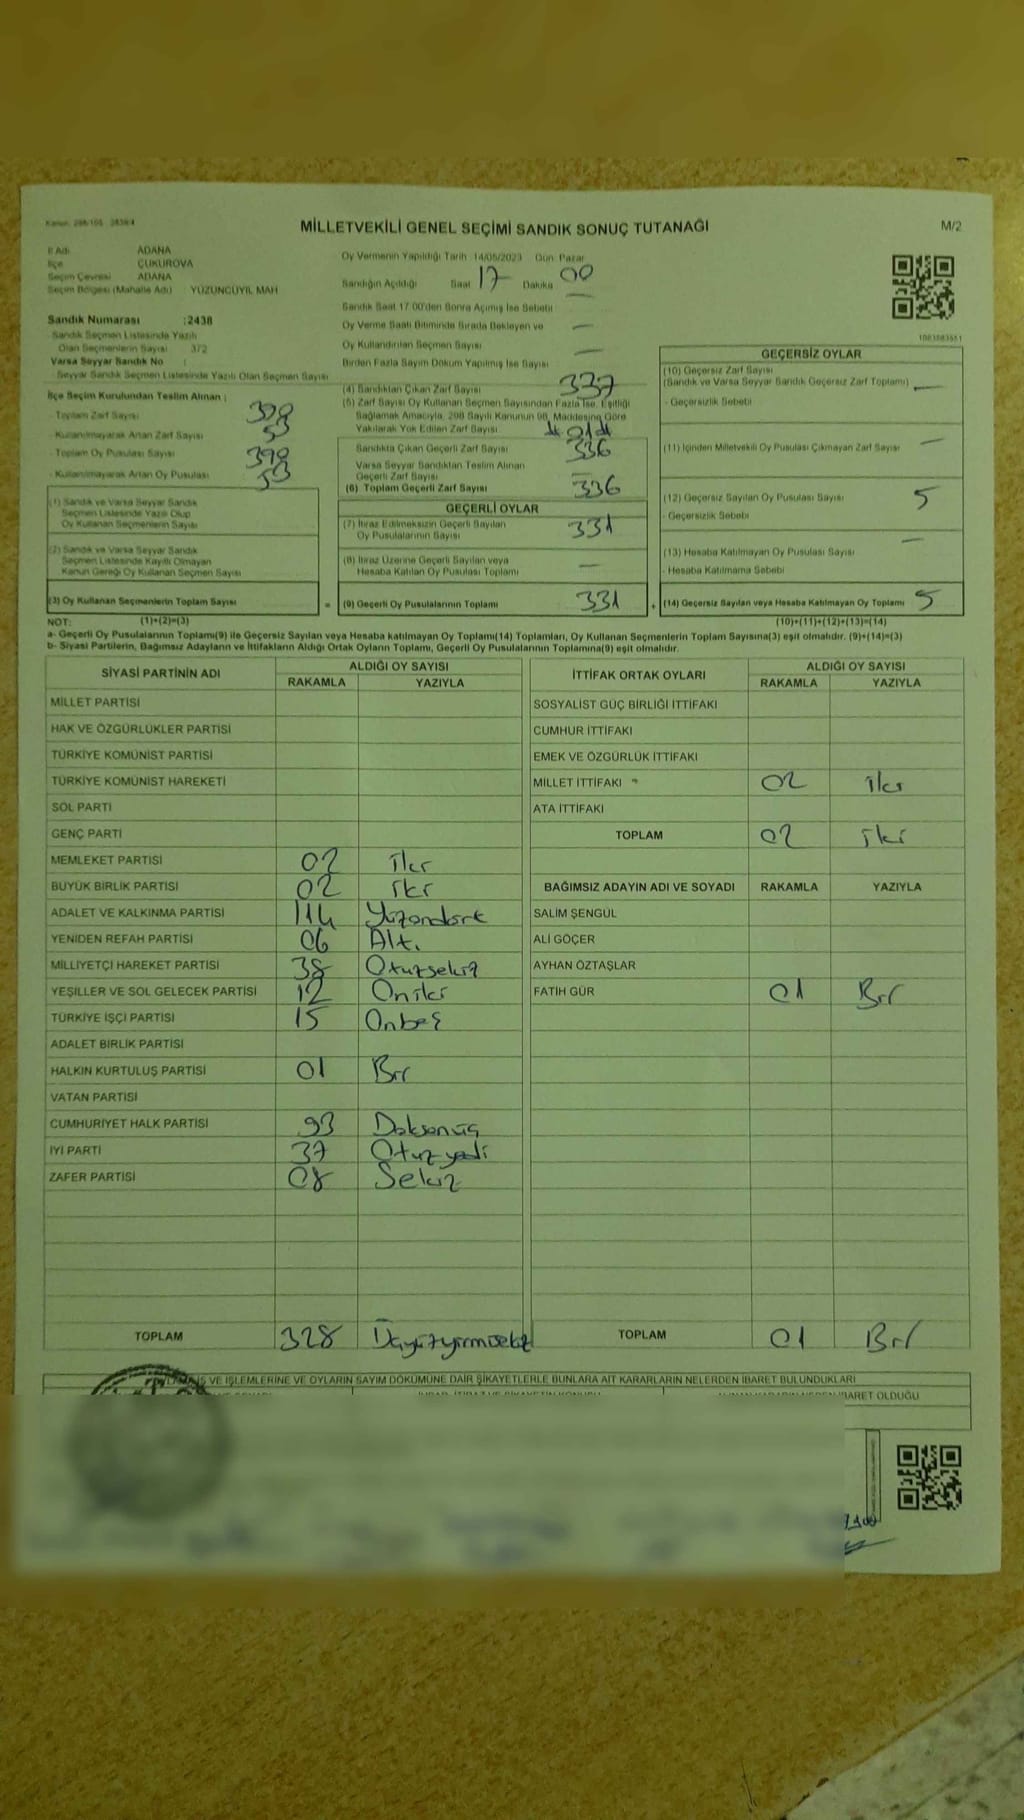 Kanun: 298/105
MİLLETVEKİLİ GENEL SEÇİMİ SANDIK SONUÇ TUTANAĞI
M/2
İl Adı ADANA
İlçe ÇUKUROVA
Seçim Çevresi ADANA
Seçim Bölgesi (Mahalle Adı) YÜZÜNCÜYIL MAH
Sandık Numarası :2438
Sandık Seçmen Listesinde Yazılı
Olan Seçmenlerin Sayısı 372
Varsa Seyyar Sandık No :
Seyyar Sandık Seçmen Listesinde Yazılı Olan Seçmen Sayısı
İlçe Seçim Kurulundan Teslim Alınan :
- Toplam Zarf Sayısı 390
- Kullanılmayarak Artan Zarf Sayısı 53
- Toplam Oy Pusulası Sayısı 390
- Kullanılmayarak Artan Oy Pusulası 53
(1) Sandık ve Varsa Seyyar Sandık
Seçmen Listesinde Yazılı Olup
Oy Kullanan Seçmenlerin Sayısı
(2) Sandık ve Varsa Seyyar Sandık
Seçmen Listesinde Kayıtlı Olmayan
Kanun Gereği Oy Kullanan Seçmen Sayısı
(3) Oy Kullanan Seçmenlerin Toplam Sayısı =
Oy Vermenin Yapıldığı Tarih 14/05/2023 Gün Pazar
Sandığın Açıldığı Saat 17 Dakika 00
Sandık Saat 17:00'den Sonra Açımış İse Sebebi —
Oy Verme Saati Bitiminde Sırada Bekleyen ve
Oy Kullandırılan Seçmen Sayısı —
Birden Fazla Sayım Döküm Yapılmış İse Sayısı —
(4) Sandıktan Çıkan Zarf Sayısı 337
(5) Zarf Sayısı Oy Kullanan Seçmen Sayısından Fazla İse, Eşitliği
Sağlamak Amacıyla, 298 Sayılı Kanunun 98. Maddesine Göre
Yakılarak Yok Edilen Zarf Sayısı 01
Sandıkta Çıkan Geçerli Zarf Sayısı 336
Varsa Seyyar Sandıktan Teslim Alınan
Geçerli Zarf Sayısı —
(6) Toplam Geçerli Zarf Sayısı 336
GEÇERLİ OYLAR
(7) İtiraz Edilmeksizin Geçerli Sayılan
Oy Pusulalarının Sayısı 331
(8) İtiraz Üzerine Geçerli Sayılan veya
Hesaba Katılan Oy Pusulası Toplamı —
(9) Geçerli Oy Pusulalarının Toplamı 331 +
1083083551
GEÇERSİZ OYLAR
(10) Geçersiz Zarf Sayısı
(Sandık ve Varsa Seyyar Sandık Geçersiz Zarf Toplamı) —
- Geçersizlik Sebebi
(11) İçinden Milletvekili Oy Pusulası Çıkmayan Zarf Sayısı —
(12) Geçersiz Sayılan Oy Pusulası Sayısı 5
- Geçersizlik Sebebi
(13) Hesaba Katılmayan Oy Pusulası Sayısı —
- Hesaba Katılmama Sebebi
(14) Geçersiz Sayılan veya Hesaba Katılmayan Oy Toplamı 5
NOT: (1)+(2)=(3) (10)+(11)+(12)+(13)=(14)
a- Geçerli Oy Pusulalarının Toplamı(9) ile Geçersiz Sayılan veya Hesaba katılmayan Oy Toplamı(14) Toplamları, Oy Kullanan Seçmenlerin Toplam Sayısına(3) eşit olmalıdır. (9)+(14)=(3)
b- Siyasi Partilerin, Bağımsız Adayların ve İttifakların Aldığı Ortak Oyların Toplamı, Geçerli Oy Pusulalarının Toplamına(9) eşit olmalıdır.
SİYASİ PARTİNİN ADI ALDIĞI OY SAYISI
RAKAMLA YAZIYLA
MİLLET PARTİSİ
HAK VE ÖZGÜRLÜKLER PARTİSİ
TÜRKİYE KOMÜNİST PARTİSİ
TÜRKİYE KOMÜNİST HAREKETİ
SOL PARTİ
GENÇ PARTİ
MEMLEKET PARTİSİ 02 iki
BÜYÜK BİRLİK PARTİSİ 02 iki
ADALET VE KALKINMA PARTİSİ 114 Yüzondört
YENİDEN REFAH PARTİSİ 06 Altı
MİLLİYETÇİ HAREKET PARTİSİ 38 Otuzsekiz
YEŞİLLER VE SOL GELECEK PARTİSİ 12 Oniki
TÜRKİYE İŞÇİ PARTİSİ 15 Onbeş
ADALET BİRLİK PARTİSİ
HALKIN KURTULUŞ PARTİSİ 01 Bir
VATAN PARTİSİ
CUMHURİYET HALK PARTİSİ 93 Doksanüç
İYİ PARTİ 37 Otuzyedi
ZAFER PARTİSİ 08 Sekiz
TOPLAM 328 Üçyüzyirmisekiz
İTTİFAK ORTAK OYLARI ALDIĞI OY SAYISI
RAKAMLA YAZIYLA
SOSYALİST GÜÇ BİRLİĞİ İTTİFAKI
CUMHUR İTTİFAKI
EMEK VE ÖZGÜRLÜK İTTİFAKI
MİLLET İTTİFAKI 02 iki
ATA İTTİFAKI
TOPLAM 02 iki
BAĞIMSIZ ADAYIN ADI VE SOYADI RAKAMLA YAZIYLA
SALİM ŞENGÜL
ALİ GÖÇER
AYHAN ÖZTAŞLAR
FATİH GÜR 01 Bir
TOPLAM 01 Bir
İŞ VE İŞLEMLERİNE VE OYLARIN SAYIM DÖKÜMÜNE DAİR ŞİKAYETLERLE BUNLARA AİT KARARLARIN NELERDEN İBARET BULUNDUKLARI
İBARET OLDUĞU